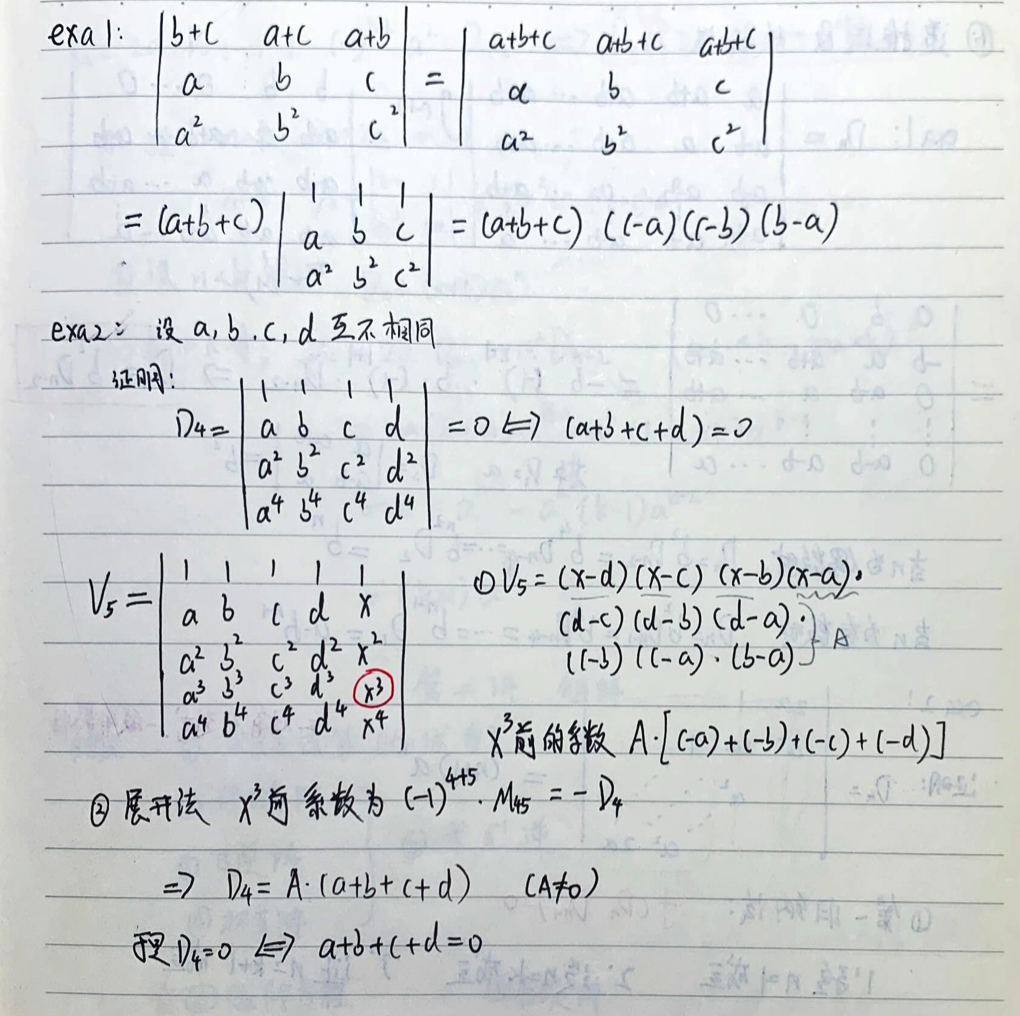 exa1: | b+c a+c a+b | = | a+b+c a+b+c a+b+c |
| a b c | | a b c |
| a² b² c² | | a² b² c² |
= (a+b+c) | 1 1 1 | = (a+b+c) (c-a)(c-b)(b-a)
| a b c |
| a² b² c² |
exa2: 设 a, b, c, d 互不相同
证明:
D₄= | 1 1 1 1 | = 0 ⟺ (a+b+c+d)=0
| a b c d |
| a² b² c² d² |
| a⁴ b⁴ c⁴ d⁴ |
V₅= | 1 1 1 1 1 |
| a b c d x |
| a² b² c² d² x² |
| a³ b³ c³ d³ x³ |
| a⁴ b⁴ c⁴ d⁴ x⁴ |
① V₅ = (x-d)(x-c)(x-b)(x-a)·
(d-c)(d-b)(d-a)·
(c-b)(c-a)·(b-a) } A
x³前的系数 A·[(-a)+(-b)+(-c)+(-d)]
② 展开法 x³前系数为 (-1)⁴⁺⁵·M₄₅ = -D₄
⇒ D₄ = A·(a+b+c+d) (A≠0)
D₄=0 ⟺ a+b+c+d=0